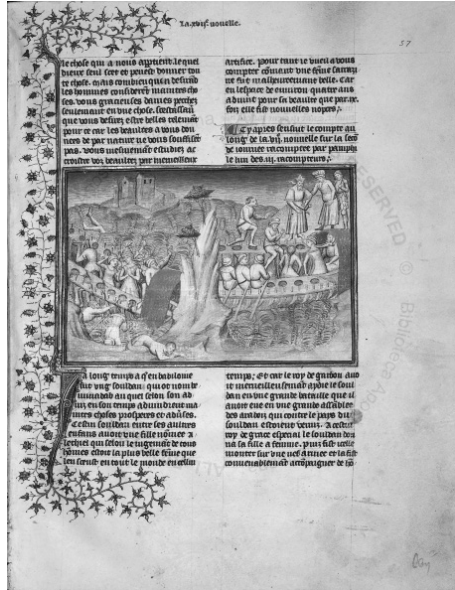 La xvije. nouelle.
57
le chose qui a nous appartient le quel
dieux seul scet et peuent donner tou
te chose. mais combien que en desirãt
les hommes considerẽt maintes cho
ses. vous gracieuses dames pechez
seulement en une chose. cestassauoir
que vous desirez estre belles
pour ce car les beautez a vous don
nees de par nature ne vous souffisẽt
pas. vous mesmement estudiez ac
croistre voz beaultez par merueilleux
artifice. pour tant ie vueil a vous
compter cõmant vne fẽme sarrazi
ne fut malheureusement belle. car
en lespace de enuiron quatre ans
aduint pour sa beaulte que par ix.
fois elle fist nouuelles nopces.
Cy apres sensuit le compte au
long de la vij. nouuelle sur la secõ
de iournee racomptee par pamphi
le lun des iij. racompteurs.
Ja long temps a qʼen babiloine
fut vng souldan qui ot nom
au quel selon son ad
uis en son temps aduindrent ma
intes choses prosperes et aduerses.
Cestui souldan entre ses aultres
enfans auoit vne fille nõmee a
lechiel qui selon le iugement de tous
hõmes estoit la plus belle fẽme que
len sceust en tout le monde en cellui
temps. Et car le roy de garbou auo
it merueilleusement aydie le soul
dan en vne grande bataille que il
auoit eue en vne grande assẽblee
des arabes qui contre le pays du dit
souldan estoient venuz. A cestui
roy de grace especial le souldan don
na sa fille a femme. puis fist icelle
monter sur vne nef armee et la fist
conuenablement accõpaigner de hõ
RESERVED © Biblioteca